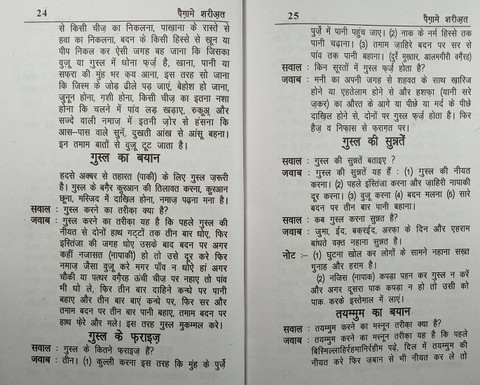 24
पैग़ामे शरीअ़त
से किसी चीज़ का निकलना, पाखाना के रास्ते से
हवा का निकलना, बदन के किसी हिस्से से खून या
पीप निकल कर ऐसी जगह बह जाना कि जिसका
वुज़ू या गुस्ल में धोना फ़र्ज़ है, खाना, पानी या
सफ़रा की मुंह भर कय आना, इस तरह सो जाना
कि जिस्म के जोड़ ढीले पड़ जाएं, बेहोश हो जाना,
जुनून होना, ग़शी होना, किसी चीज़ का इतना नशा
होना कि चलने में पांव लड़ खड़ाए, रुकूअ़ और
सज्दे वाली नमाज़ में इतनी ज़ोर से हंसना कि
आस-पास वाले सुनें, दुखती आंख से आंसू बहना।
इन तमाम बातों से वुज़ू टूट जाता है।
गुस्ल का बयान
हदसे अक्बर से तहारत (पाकी) के लिए गुस्ल जरूरी
है। गुस्ल के बगै़र क़ुरआन की तिलावत करना, क़ुरआन
छूना, मस्जिद में दाखि़ल होना, नमाज़ पढ़ना मना है।
सवाल : गुस्ल करने का तरीक़ा क्या है?
जवाब : गुस्ल करने का तरीक़ा यह है कि पहले गुस्ल की
नीयत से दोनों हाथ गट्टों तक तीन बार धोए, फिर
इस्तिंजा की जगह धोए उसके बाद बदन पर अगर
कहीं नजासत (नापाकी) हो तो उसे दूर करे फिर
नमाज़ जैसा वुज़ू करे मगर पाँव न धोए हां अगर
चौकी या पत्थर वगै़रह ऊंची चीज़ पर नहाए तो पांव
भी धो ले, फिर तीन बार दाहिने कन्धे पर पानी
बहाए और तीन बार बाएं कन्धे पर, फिर सर और
तमाम बदन पर तीन बार पानी बहाए, तमाम बदन पर
हाथ फेरे और मले। इस तरह गुस्ल मुकम्मल करे।
गुस्ल के फ़राइज़
सवाल : गुस्ल के कितने फ़राइज़ हैं?
जवाब : तीन। (1) कुल्ली करना इस तरह कि मुंह के पुर्ज़े
25
पैग़ामे शरीअ़त
पुर्ज़े में पानी पहुंच जाए। (2) नाक के नर्म हिस्से तक
पानी चढ़ाना। (3) तमाम ज़ाहिरे बदन पर सर से
पांव तक पानी बहाना। (दुर्रे मुख़्तार, आलमगीरी वगै़रह)
सवाल : किन सूरतों में गुस्ल फ़र्ज़ होता है?
जवाब : मनी का अपनी जगह से शहवत के साथ खारिज
होना या एहतेलाम होने से और हशफ़ा (यानी सरे
ज़कर) का औरत के आगे या पीछे या मर्द के पीछे
दाखि़ल होने से, दोनों पर गुस्ल फ़र्ज़ होता है। फिर
हैज़ व निफ़ास से फ़रागत पर।
गुस्ल की सुन्नतें
सवाल : गुस्ल की सुन्नतें बताइए ?
जवाब : गुस्ल की सुन्नतें यह हैं : (1) गुस्ल की नीयत
करना। (2) पहले इस्तिंजा करना और ज़ाहिरी नापाकी
दूर करना। (3) वुज़ू करना (4) बदन मलना (5) सारे
बदन पर तीन बार पानी बहाना।
सवाल : कब गुस्ल करना सुन्नत है?
जवाब : जुमा, ईद, बक़रईद, अरफ़ा के दिन और एहराम
बांधते वक़्त नहाना सुन्नत है।
नोट :- (1) घुटना खोल कर लोगों के सामने नहाना सख़्त
गुनाह और हराम है।
(2) नजिस (नापाक) कपड़ा पहन कर गुस्ल न करें
और अगर दूसरा पाक कपड़ा न हो तो उसी को
पाक करके इस्तेमाल में लाएं।
तयम्मुम का बयान
सवाल : तयम्मुम करने का मस्नून तरीक़ा क्या है?
जवाब : तयम्मुम करने का मस्नून तरीक़ा यह है कि पहले
बिस्मिल्लाहिर्रहमानिर्रहीम पढ़े, दिल में तयम्मुम की
नीयत करे फिर जबान से भी नीयत कर ले तो